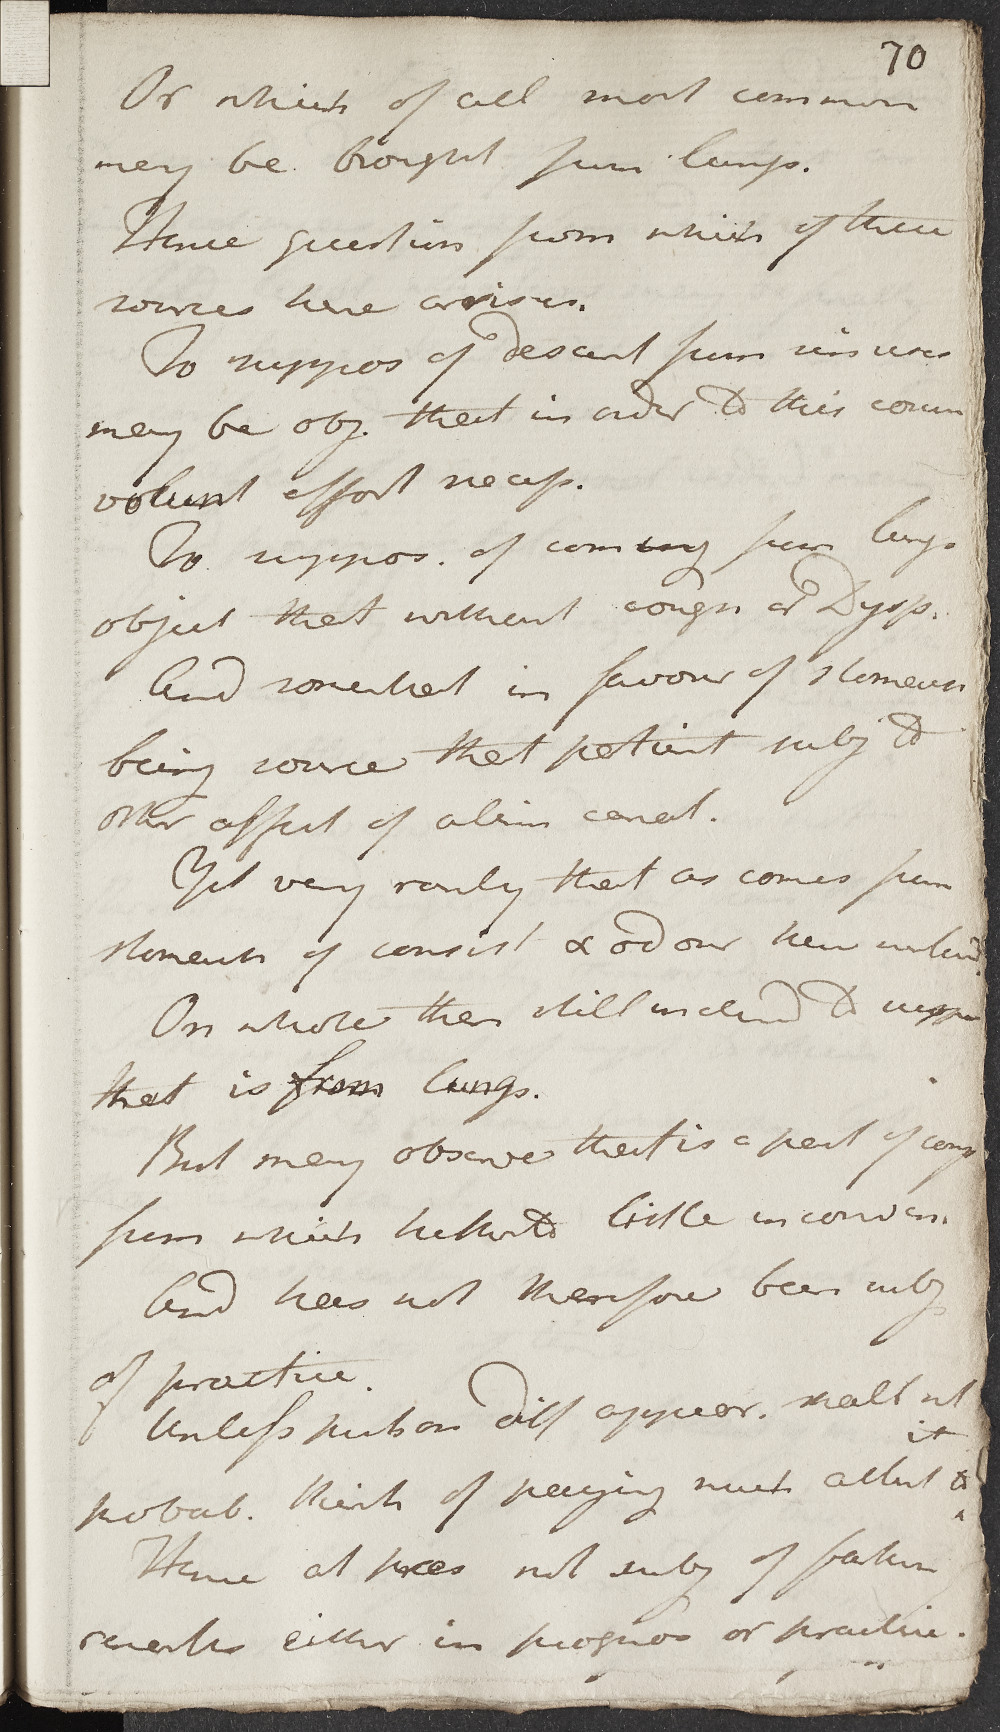 70
Or which of all most common
may be brought from lungs.
Hence question from which of these
sources here arises.
To suppos of descent from
may be obj. that in order to this
volunt effort necess.
To suppos. of coming from lungs
object that without cough or Dysp.
And somewhat in favour of stomach
being source that patient subj to
other affect of alim canal.
Yet very rarely that as comes from
stomach of consist & odour here
On whole then still inclined to
that is from lungs.
But may observe that is a part of
from which hitherto little inconven.
And has not therefore been subj
of practice.
Unless puts on diff appear. shall not
probab. think of paying much attent to it
Hence at pres not subj of farther
remarks either in prognos or practice.